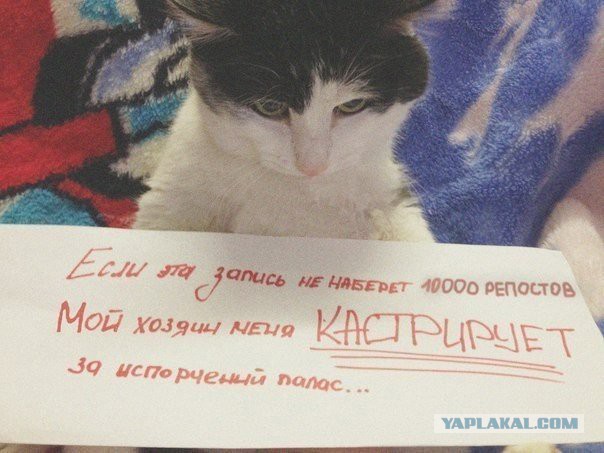 Если эта запись не наберет 10000 репостов
Мой хозяин меня КАСТРИРУЕТ
за испорченый палас...
YAPLAKAL.COM